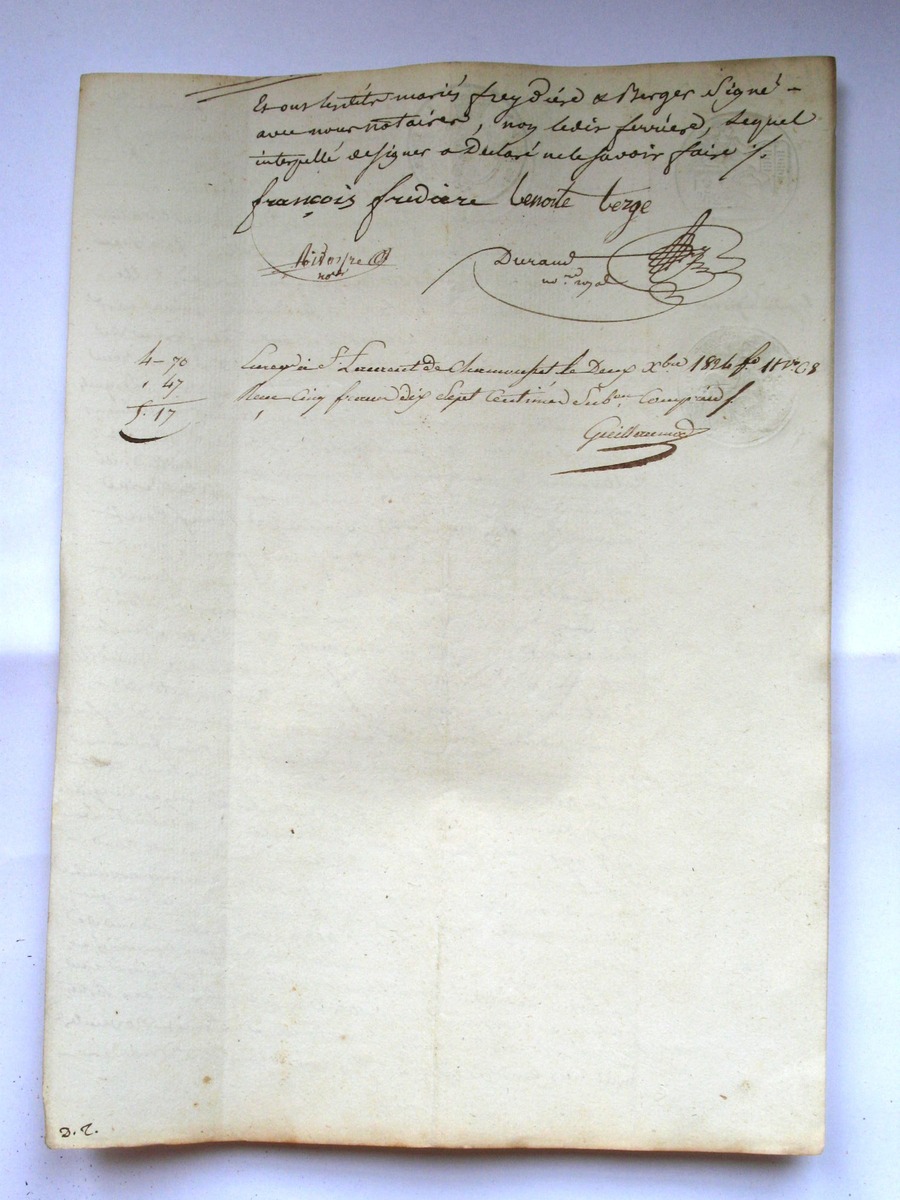 Et ont lesdits mariés freydiére & Berger Signé
avec nous notaires, non ledit ferriere, Lequel
interpellé designer a Declaré ne le savoir faire ./.
françois frediere benoite berge
Durand
nore. royal
4 - 70
, 47
5. 17
Enregé. à St. Laurent de Chamousset le Deux Xbre 1824 fo.
Reçu Cinq francs dix Sept Centimes Subon. Comprise ./.
Guillaumod
D. T.